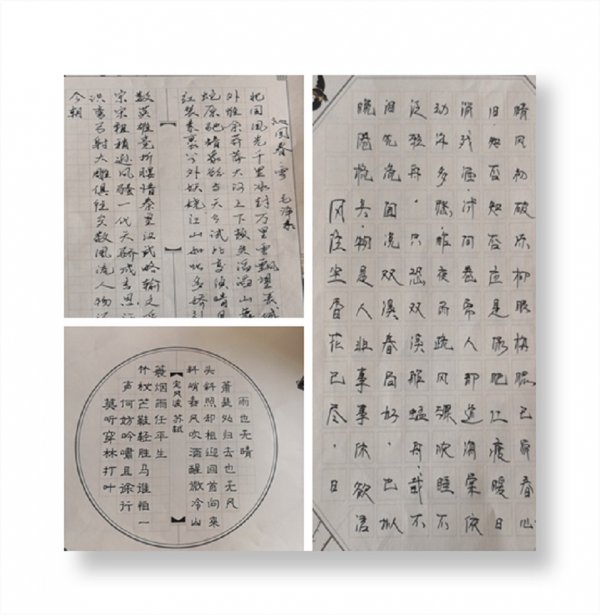 沁园春 雪 毛泽东
北国风光千里冰封万里雪飘望长城
外惟余莽莽大河上下顿失滔滔山舞
蛇原驰蜡象欲与天公试比高须晴日
红装素裹分外妖娆江山如此多娇引
数英雄竞折腰惜秦皇汉武略输文采
宗宋祖稍逊风骚一代天骄成吉思汗
识弯弓射大雕俱往矣数风流人物还
今朝
莫听穿林打叶
声何妨吟啸且徐行
竹杖芒鞋轻胜马谁怕一
蓑烟雨任平生
定风波 苏轼
料峭春风吹酒醒微冷山
头斜照却相迎回首向来
萧瑟处归去也无风
雨也无晴
风住尘香花已尽·日
晚倦梳头·物是人非事事休·欲语
泪先流闻说双溪春尚好·也拟
泛轻舟·只恐双溪舴艋舟·载不
动许多愁昨夜雨疏风骤·浓睡不
消残酒·试问卷帘人却道海棠依
旧知否知否应是绿肥红瘦暖日
晴风初破冻柳眼梅腮已觉春心